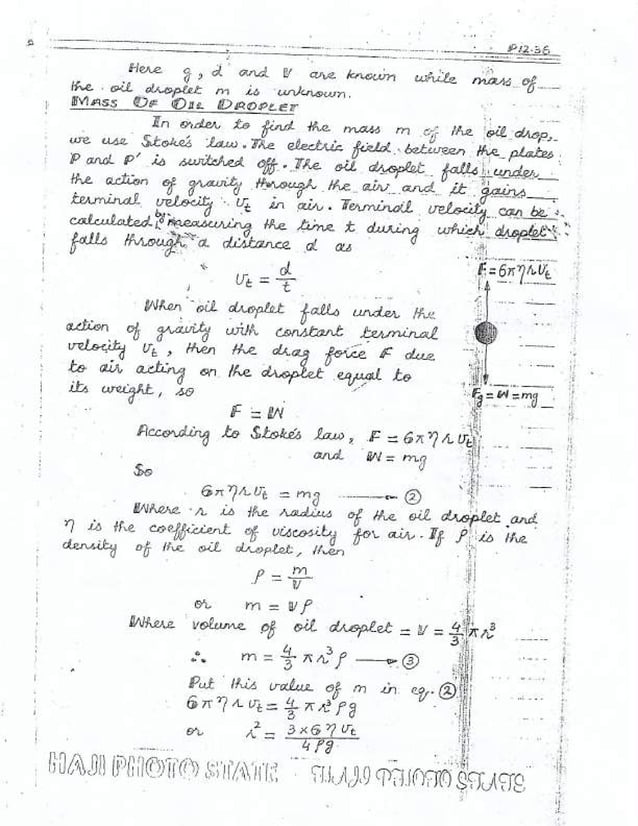 P12-36
Here g, d and V are known while mass of
the oil droplet m is unknown.
MASS OF OIL DROPLET
In order to find the mass m of the oil drop,
we use Stoke's law. The electric field between the plates
P and P' is switched off. The oil droplet falls under
the action of gravity through the air and it gains
terminal velocity Vt in air. Terminal velocity can be
calculated by measuring the time t during which droplet
falls through a distance d as
Vt = d/t
F = 6πηrVt
When oil droplet falls under the
action of gravity with constant terminal
velocity Vt, then the drag force F due
to air acting on the droplet equal to
its weight, so
Fg = W = mg
F = W
According to Stoke's law, F = 6πηrVt
and W = mg
So
6πηrVt = mg ——— ②
Where r is the radius of the oil droplet and
η is the coefficient of viscosity for air. If ρ is the
density of the oil droplet, then
ρ = m/V
or m = Vρ
Where volume of oil droplet = V = 4/3 πr³
∴ m = 4/3 πr³ρ → ③
Put this value of m in eq. ②
6πηrVt = 4/3 πr³ρg
or r² = 3×6ηVt/4ρg
HAJI PHOTO STATE HAJI PHOTO STATE